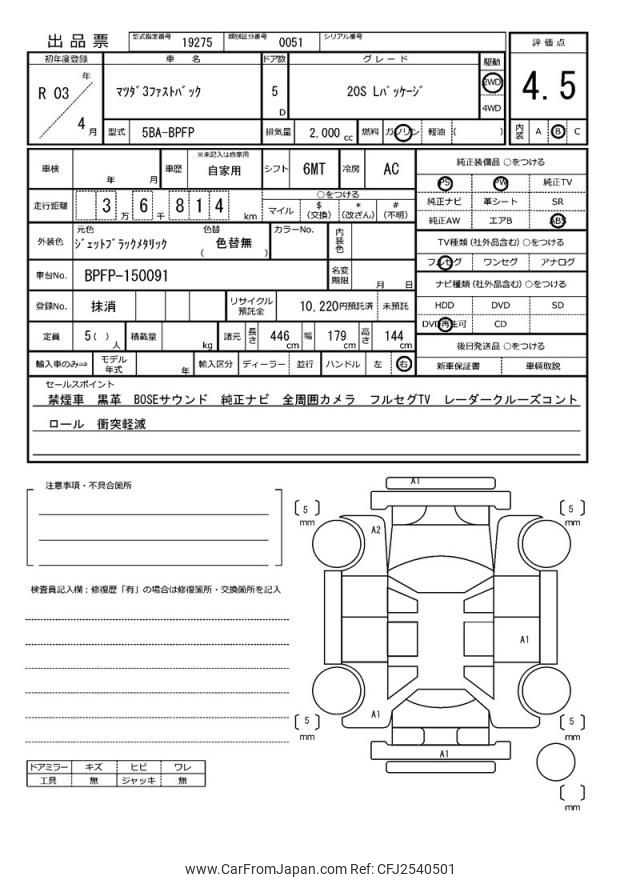 出品票 型式指定番号 19275 類別区分番号 0051 シリアル番号
初年度登録 車 名 ドア数 グレード 駆動 評価点
R 03 年 4 月 マツダ3ファストバック 5 D 20S Lパッケージ 2WD 4WD 4.5
型式 5BA-BPFP 排気量 2,000 cc 燃料 ガソリン 軽油 ( ) 内装 A B C
車検 年 月 車歴 ※未記入は自家用 自家用 シフト 6MT 冷房 AC 純正装備品 ○をつける
PS PW 純正TV
走行距離 3 万 6 千 8 1 4 km ○をつける 純正ナビ 革シート SR
マイル $ (交換) * (改ざん) # (不明) 純正AW エアB ABS
外装色 元色 ジェットブラックメタリック 色替 ( 色替無 ) カラーNo. 内装色 TV種類 (社外品含む) ○をつける
フルセグ ワンセグ アナログ
車台No. BPFP-150091 名変期限 月 日 ナビ種類 (社外品含む) ○をつける
登録No. 抹消 リサイクル預託金 10,220円預託済 未預託 HDD DVD SD
DVD再生可 CD
定員 5 ( ) 人 積載量 kg 諸元 長さ 446 cm 幅 179 cm 高さ 144 cm 後日発送品 ○をつける
輸入車のみ⇒ モデル年式 年 輸入区分 ディーラー 並行 ハンドル 左 右 新車保証書 車輌取説
セールスポイント
禁煙車 黒革 BOSEサウンド 純正ナビ 全周囲カメラ フルセグTV レーダークルーズコント
ロール 衝突軽減
注意事項・不具合箇所
検査員記入欄：修復歴「有」の場合は修復箇所・交換箇所を記入
A1
5 mm
5 mm
A2
A1
A1
5 mm
5 mm
A1
mm
ドアミラー キズ ヒビ ワレ
工具 無 ジャッキ 無
www.CarFromJapan.com Ref: CFJ2540501